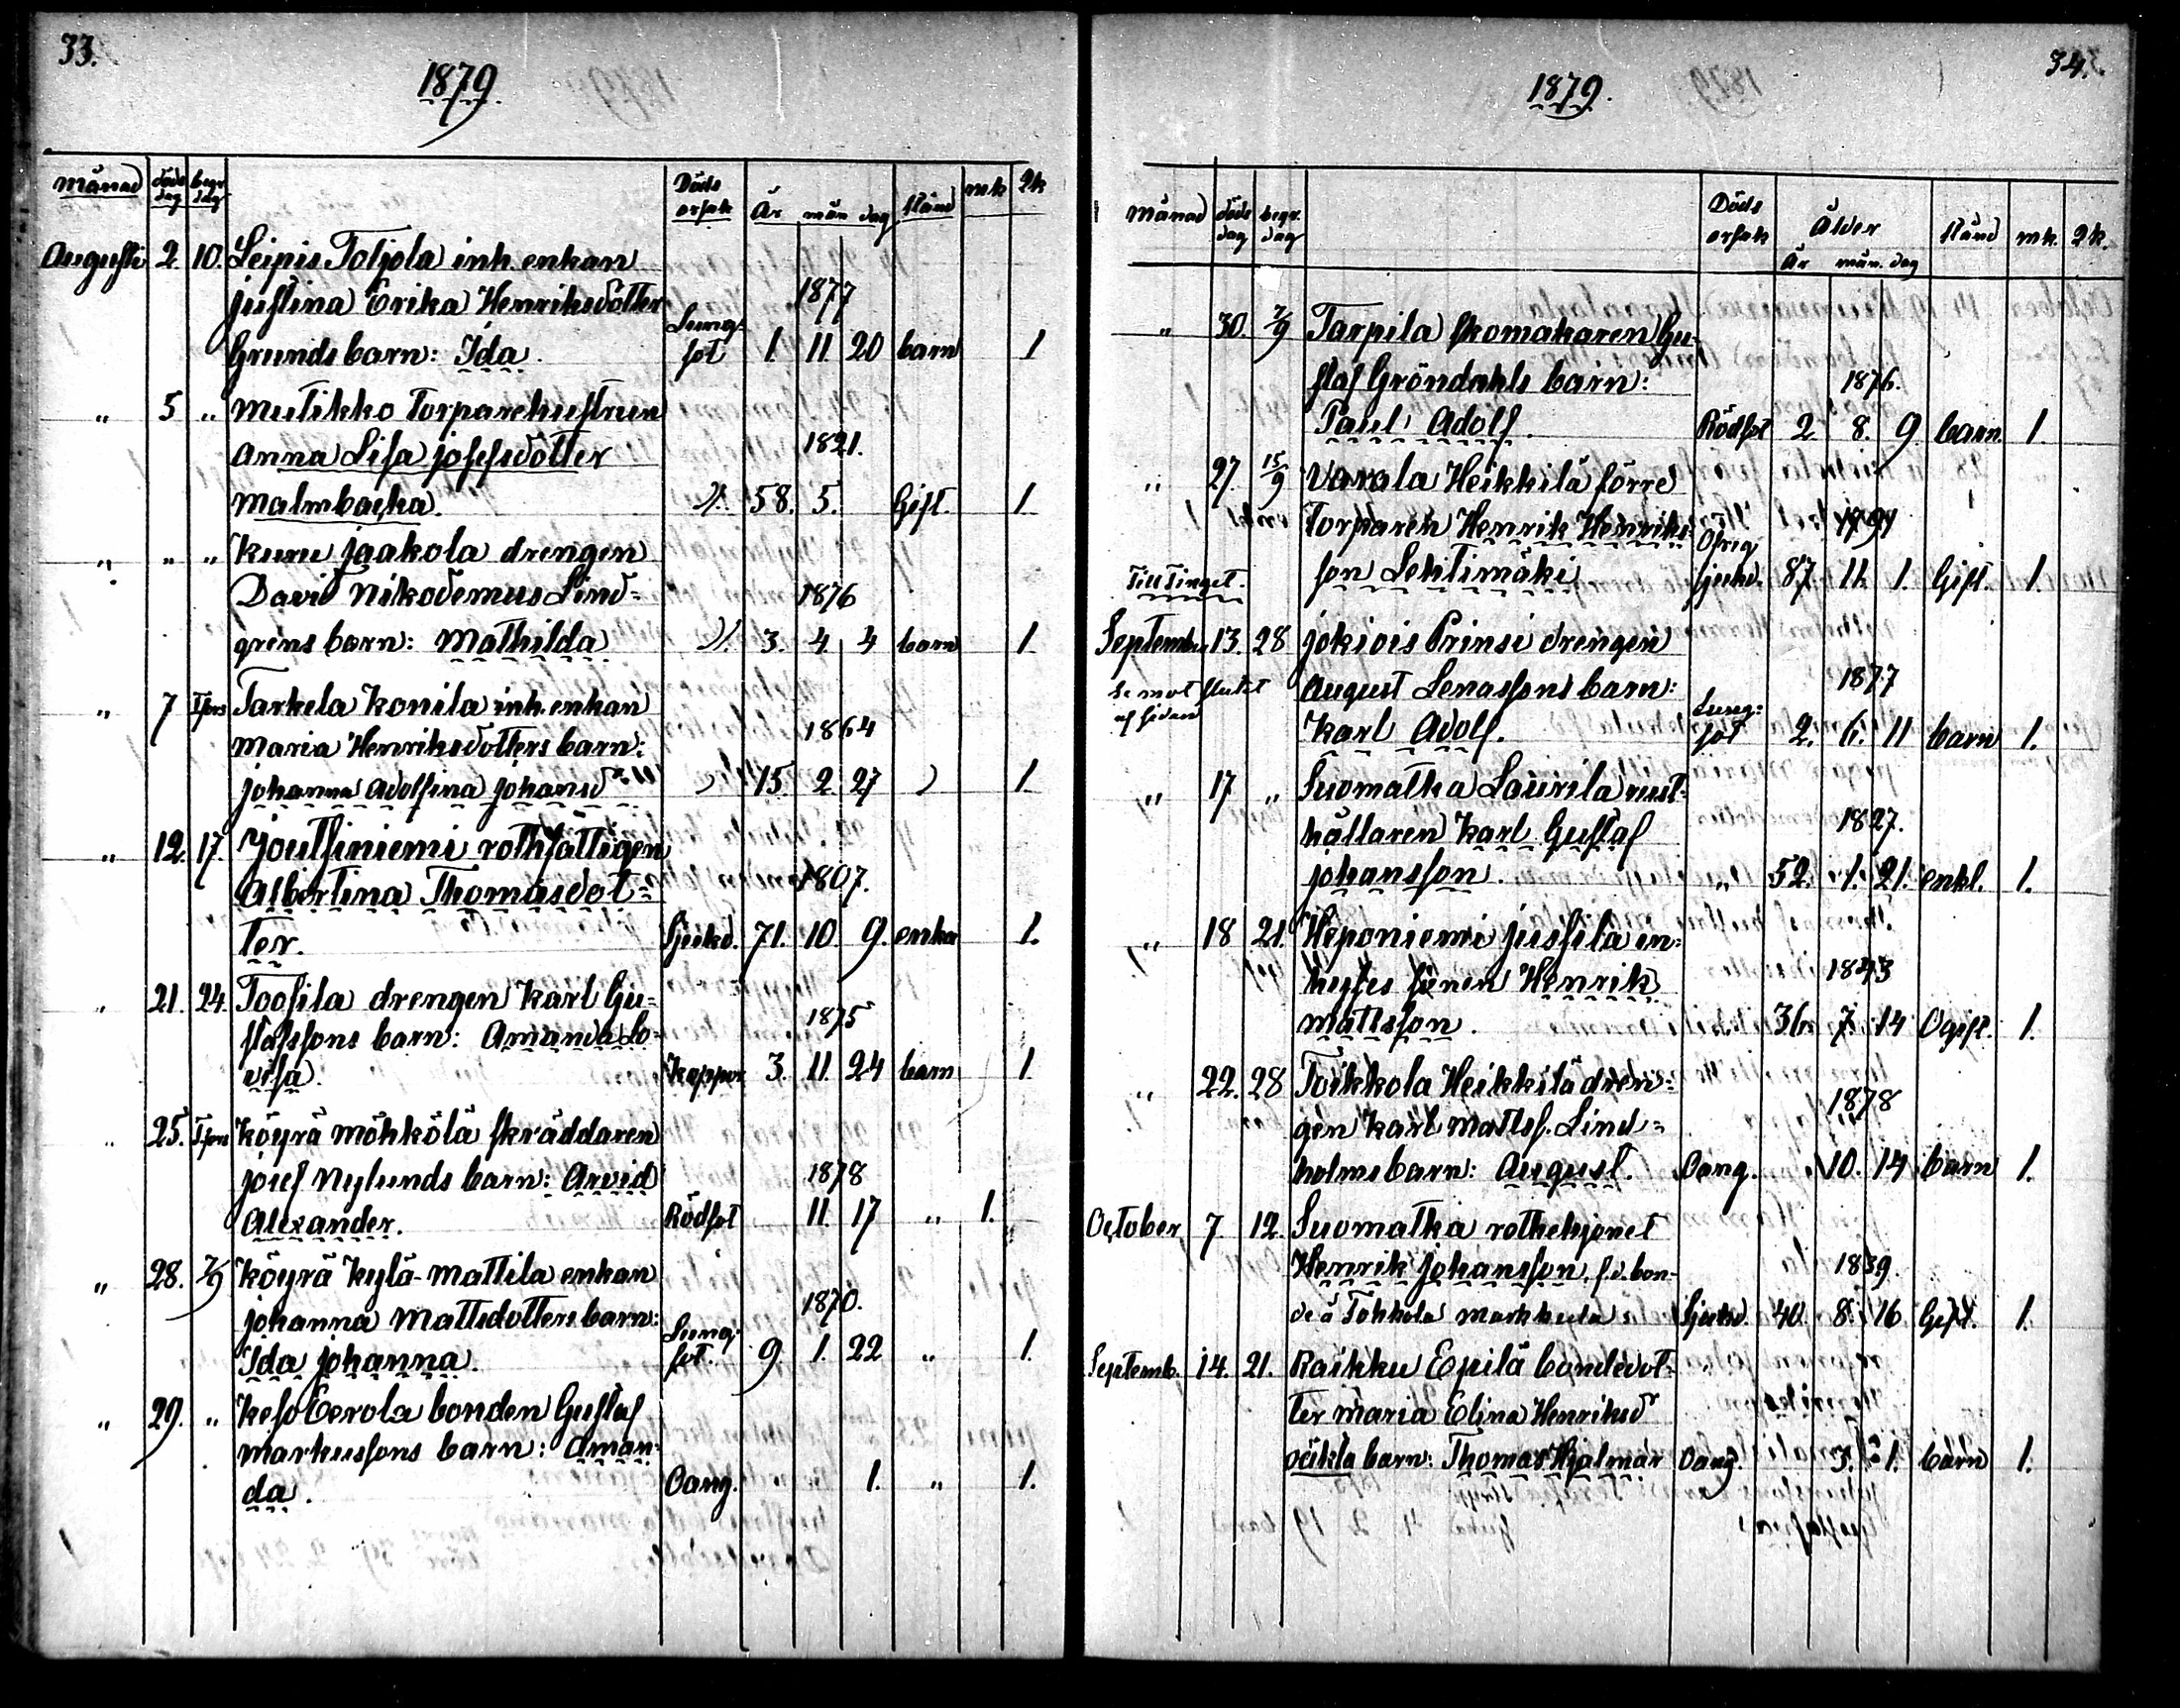 33.
1879.
Månad döds dag begr. dag Döds orsak År mån dag Stånd mk qk
Augusti 2. 10. Leipis Toljola inh. enkan
Justina Erika Henriksdotter 1877
Grunds barn: Ida. Lungsot 1. 11 20 barn 1
" 5 " Mutikko Torparehustrun
Anna Lisa Josefsdotter 1821.
Malmbacka. 58. 5. Gift. 1.
" " " Kuru Jaakola drengen
David Nikodemus Lind- 1876
grens barn: Mathilda 3. 4. 4 barn 1.
" 7 Tfors Tarkela Konila inh. enkan
Maria Henriksdotters barn: 1864
Johanna Adolfina Johansd 15 2 27 1.
" 12. 17. Joutsiniemi rothfattigen
Albertina Thomasdot- 1807.
ter. Sjukd. 71. 10 9. enka 1.
" 21. 24. Toosila drengen Karl Gu-
stafssons barn: Amanda Lo- 1875
visa. Koppor 3. 11. 24 barn 1.
" 25. Tfors Köyrä Möhkölä skräddaren
Josef Nylunds barn: Arvid 1878
Alexander. Rödsot 11. 17 " 1.
" 28. 7/9 Köyrä Kylä-Mattila enkan
Johanna Mattsdotters barn: 1870.
Ida Johanna. Lungsot. 9. 1. 22 " 1.
" 29. " Keso Eerola bonden Gustaf
Markussons barn: Aman-
da. Oang. 1. " 1.
34.
1879.
Månad döds dag begr. dag Döds orsak Ålder År mån. dag Stånd mk. qk.
" 30. 7/9 Tarpila skomakaren Gu-
staf Gröndahls barn: 1876.
Paul Adolf. Rödsot 2 8. 9 barn. 1.
" 27. 15/9 Varala Heikkilä förre
Torparen Henrik Henriks-
Till Tinget. son Lehtimäki sjukd. 87. 11. 1. Gift. 1.
September 13. 28 Jokiois Prinsi drengen
se mot slutet August Lenassons barn: 1877
af sidan Karl Adolf. Lungsot 2. 6. 11 barn 1.
" 17 " Suomatka Laurila rust-
hållaren Karl Gustaf 1827.
Johansson. " 52. 1. 21. enkl. 1.
" 18 21. Heponiemi Jussila in-
hyses sonen Henrik 1843
Mattsson. 36. 7. 14 Ogift. 1.
" 22. 28 Toikkola Heikkilä dren-
gen Karl Mattss. Lind- 1878
holms barn: August. Oang. 10. 14 barn 1.
October 7. 12. Suomatka rothehjonet
Henrik Johansson, f.d. bon- 1839.
de å Tohkola Markkula Sjukd. 40. 8. 16 Gift. 1.
Septemb. 14. 21. Raikku Epilä bondedot-
ter Maria Elina Henriksd
oäkta barn: Thomas Hjalmar Oang. 3. 21. barn 1.